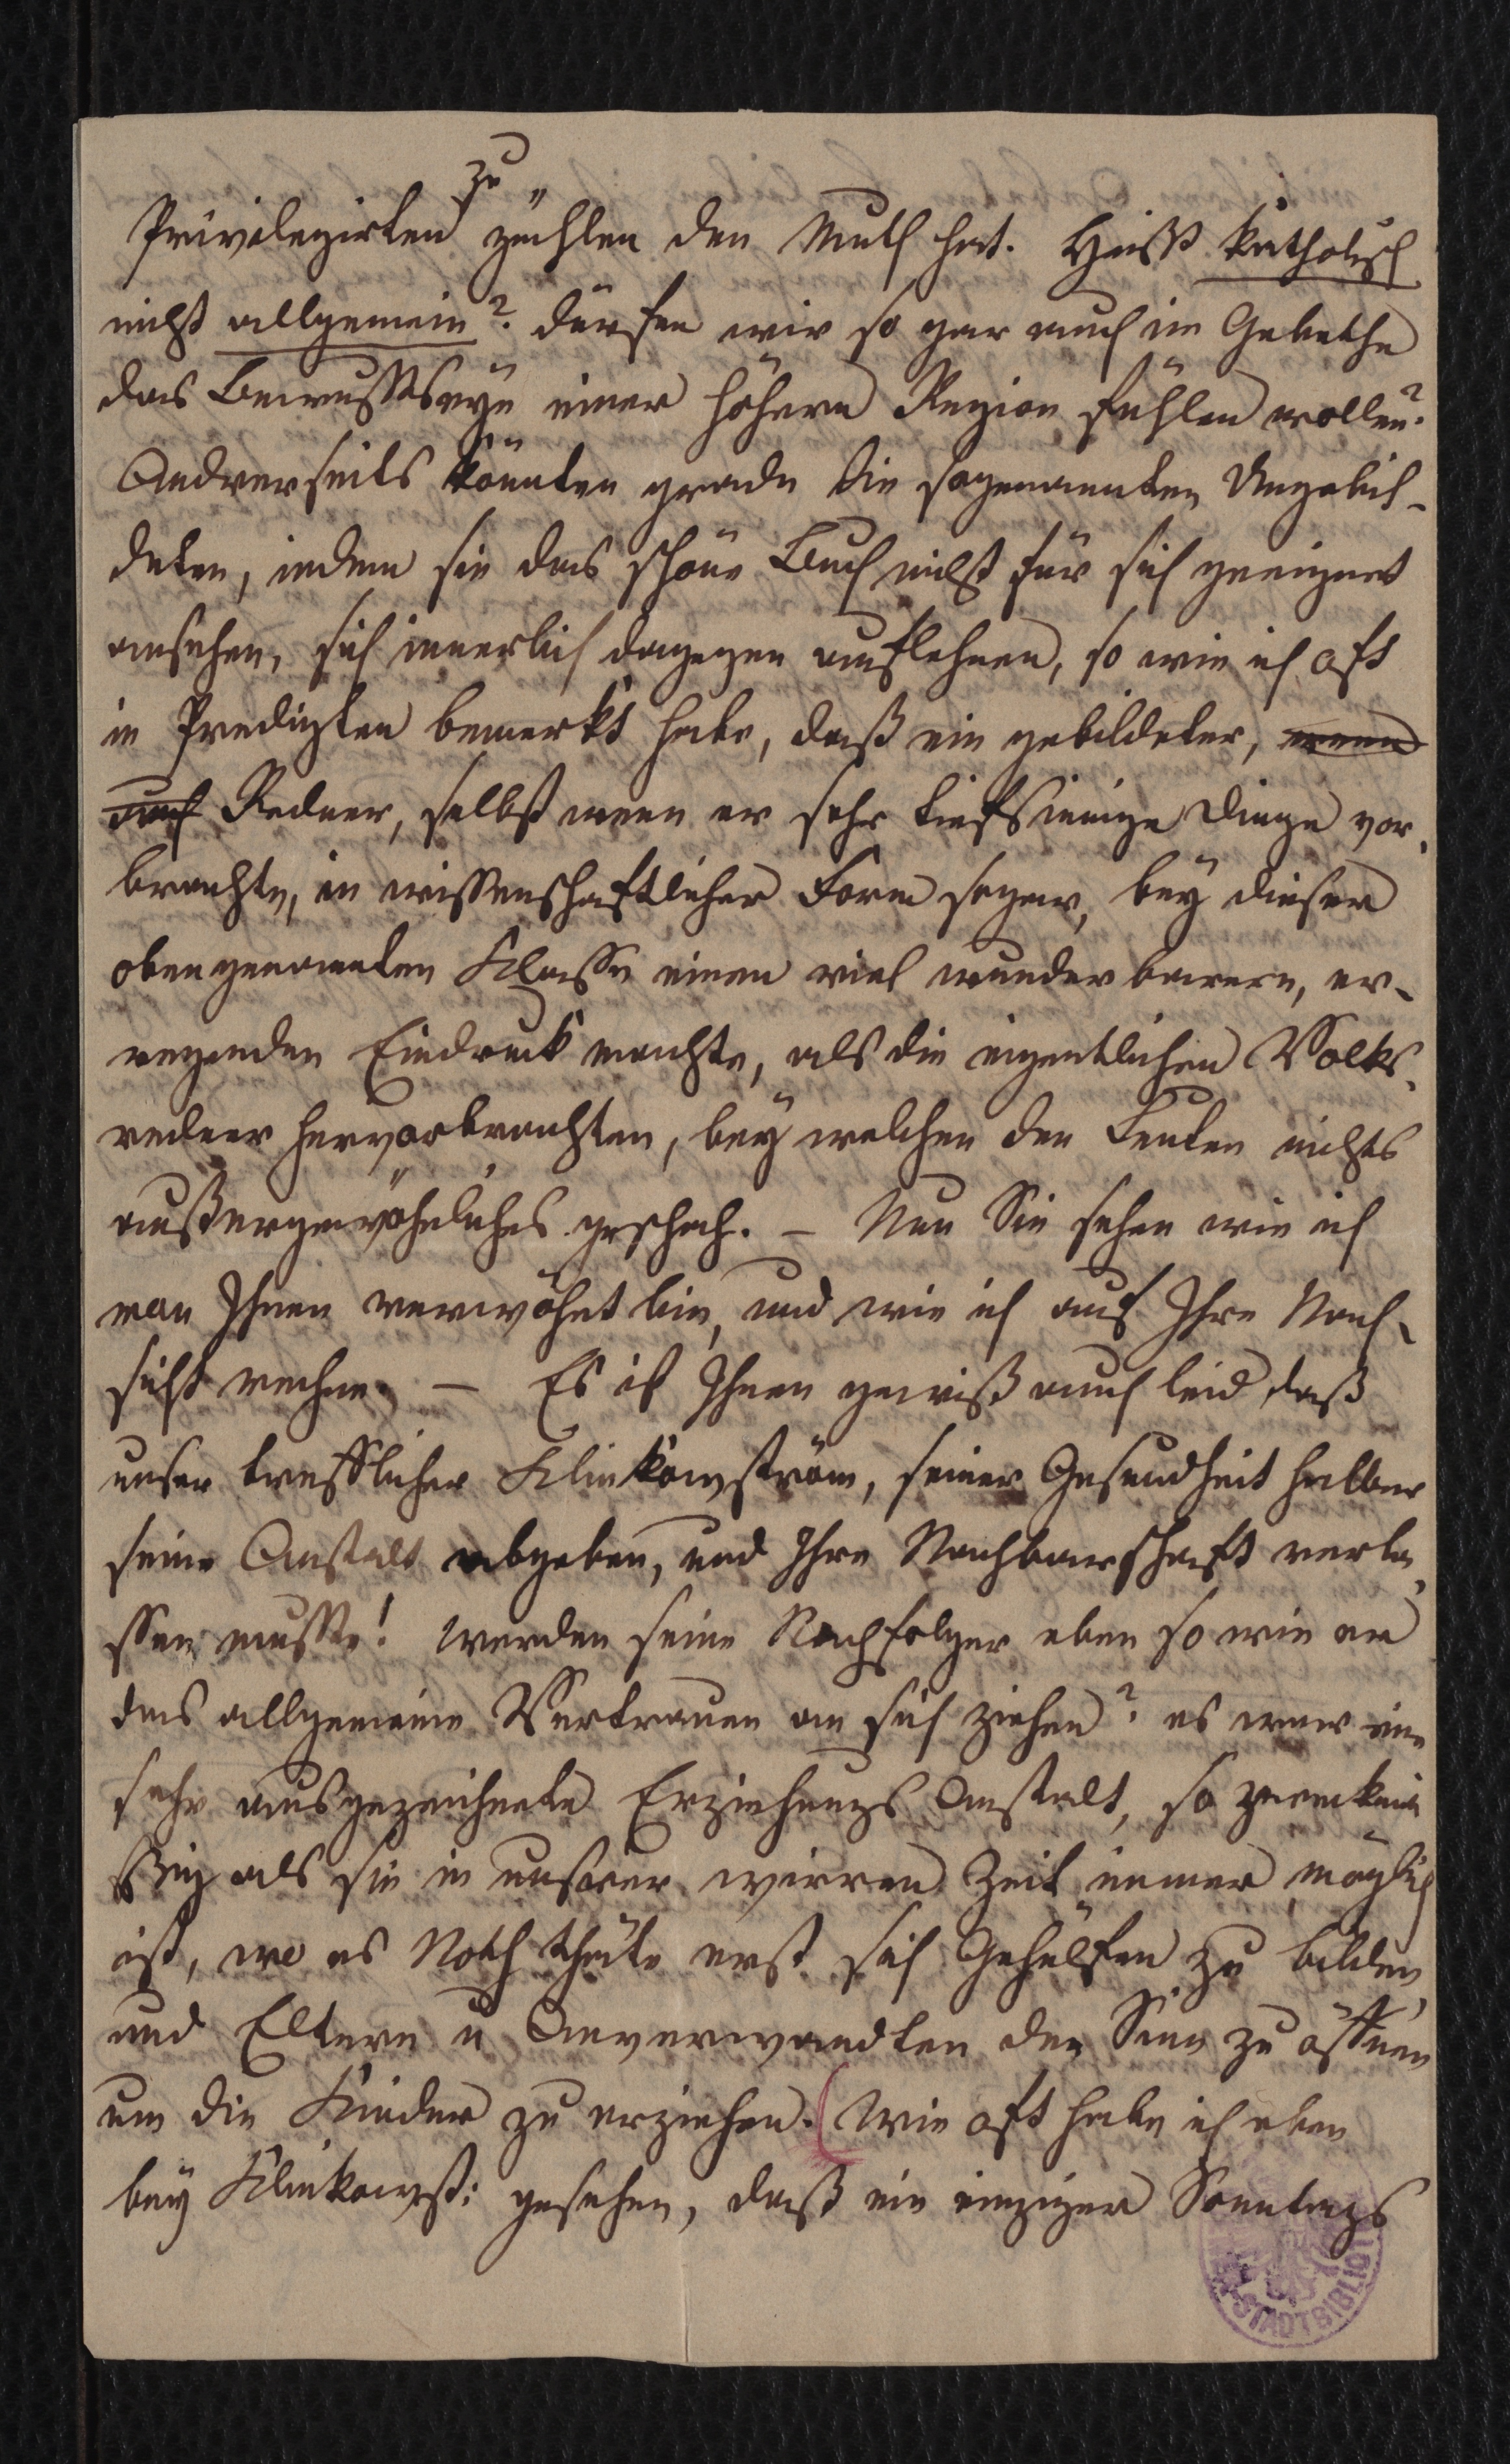 zu
Privilegirten zu zählen den Muth hat. Heißt katholisch
nicht allgemein? dürfen wir so gar auch im Gebethe
das Bewußtseyn einer höhern Region fühlen wollen?
Andrerseits könnten grade die sogenannten Ungebil-
deten, indem sie das schöne Buch nicht für sich geeignet
ansehen, sich innerlich dagegen auflehnen, so wie ich oft
in Predigten bemerkt habe, daß ein gebildeter, wenn
auch Redner, selbst wenn er sehr tiefsinnige Dinge vor-
brachte, in wissenschaftlicher Form sogar, bey dieser
obengenannten Klasse einen viel wunderbarern, er-
regenden Eindruck machte, als die eigentlichen Volks-
redner hervorbrachten, bey welchen den Leuten nichts
außergewöhnliches geschah. – Nun Sie sehen wie ich
von Ihnen verwöhnt bin, und wie ich auf Ihre Nach-
sicht rechne. – Es ist Ihnen gewiß auch leid daß
unser trefflicher Klinkowström, seiner Gesundheit halber
seine Anstalt abgeben, und Ihre Nachbarschaft verla-
ssen mußte! werden seine Nachfolger eben so wie er
das allgemeine Vertrauen an sich ziehen? es war eine
sehr ausgezeichnete Erziehungs Anstalt, so zweckmä
ßig als sie in unsrer wirren Zeit immer möglich
ist, wo es Noth thäte erst sich Gehülfen zu bilden,
und Eltern u Anverwandten den Sinn zu öffnen
um die Kinder zu erziehen. (Wie oft habe ich eben
bey Klinkowst: gesehen, daß ein einziger Sonntags
STADTBIBLIOT